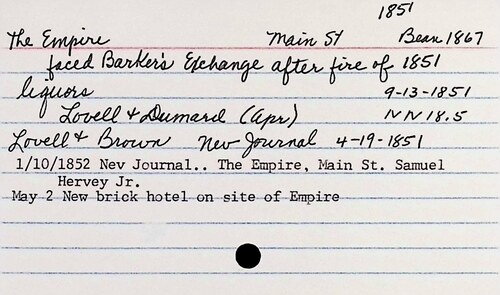 1851
The Empire Main St Bean 1867
faced Barker's Exchange after fire of 1851
liquors 9-13-1851
Lovell & Dumard (Apr) NN 18.5
Lovell & Brown Nev Journal 4-19-1851
1/10/1852 Nev Journal.. The Empire, Main St. Samuel
Hervey Jr.
May 2 New brick hotel on site of Empire